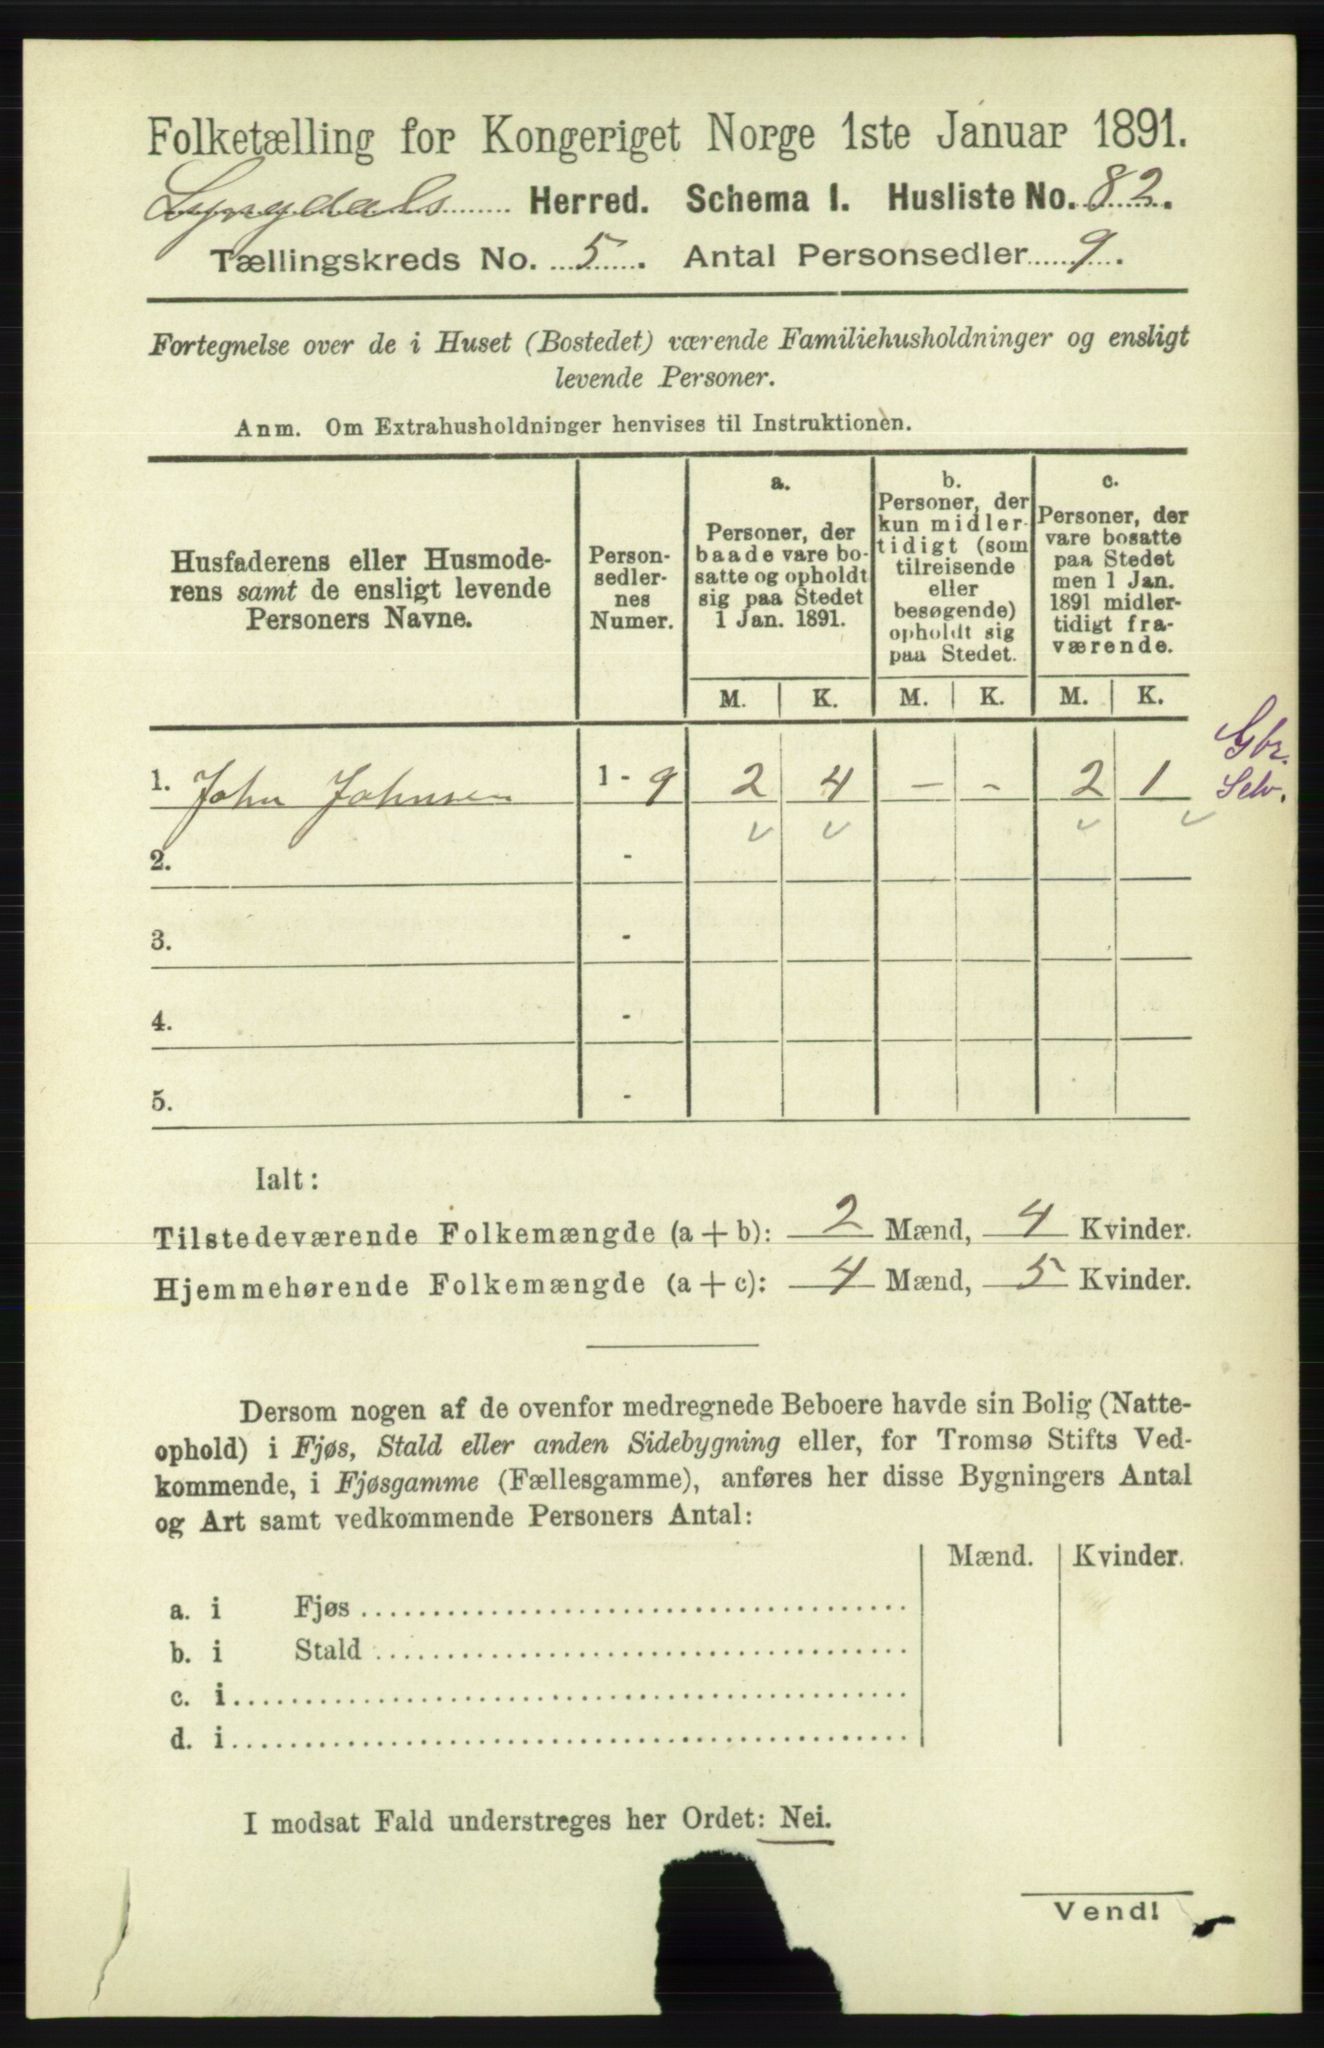 Folketælling for Kongeriget Norge 1ste Januar 1891.
Lyngdals Herred. Schema I. Husliste No. 82.
Tællingskreds No. 5. Antal Personsedler 9.
Fortegnelse over de i Huset (Bostedet) værende Familiehusholdninger og ensligt
levende Personer.
Anm. Om Extrahusholdninger henvises til Instruktionen.
Husfaderens eller Husmode-
rens samt de ensligt levende
Personers Navne.
Person-
sedler-
nes
Numer.
a.
Personer, der
baade vare bo-
satte og opholdt
sig paa Stedet
1 Jan. 1891.
b.
Personer, der
kun midler-
tidigt (som
tilreisende
eller
besøgende)
opholdt sig
paa Stedet.
c.
Personer, der
vare bosatte
paa Stedet
men 1 Jan.
1891 midler-
tidigt fra-
værende.
M. K. M. K. M. K.
1. John Johnsen 1 - 9 2 4 - - 2 1 Gbr.
Selv.
2. -
3. -
4. -
5. -
Ialt:
Tilstedeværende Folkemængde (a + b): 2 Mænd, 4 Kvinder.
Hjemmehørende Folkemængde (a + c): 4 Mænd, 5 Kvinder.
Dersom nogen af de ovenfor medregnede Beboere havde sin Bolig (Natte-
ophold) i Fjøs, Stald eller anden Sidebygning eller, for Tromsø Stifts Ved-
kommende, i Fjøsgamme (Fællesgamme), anføres her disse Bygningers Antal
og Art samt vedkommende Personers Antal:
Mænd. Kvinder.
a. i Fjøs
b. i Stald
c. i
d. i
I modsat Fald understreges her Ordet: Nei.
Vend!